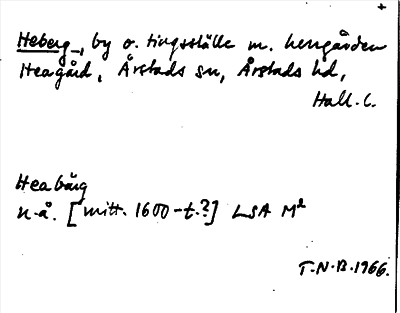 +
Heberg, by o. tingsställe m. herrgården
Heagård, Årstads sn, Årstads hd,
Hall. l.
Heabärg
n.å. [mitt. 1600-t.?] LSA M²
T.N.B. 1966.